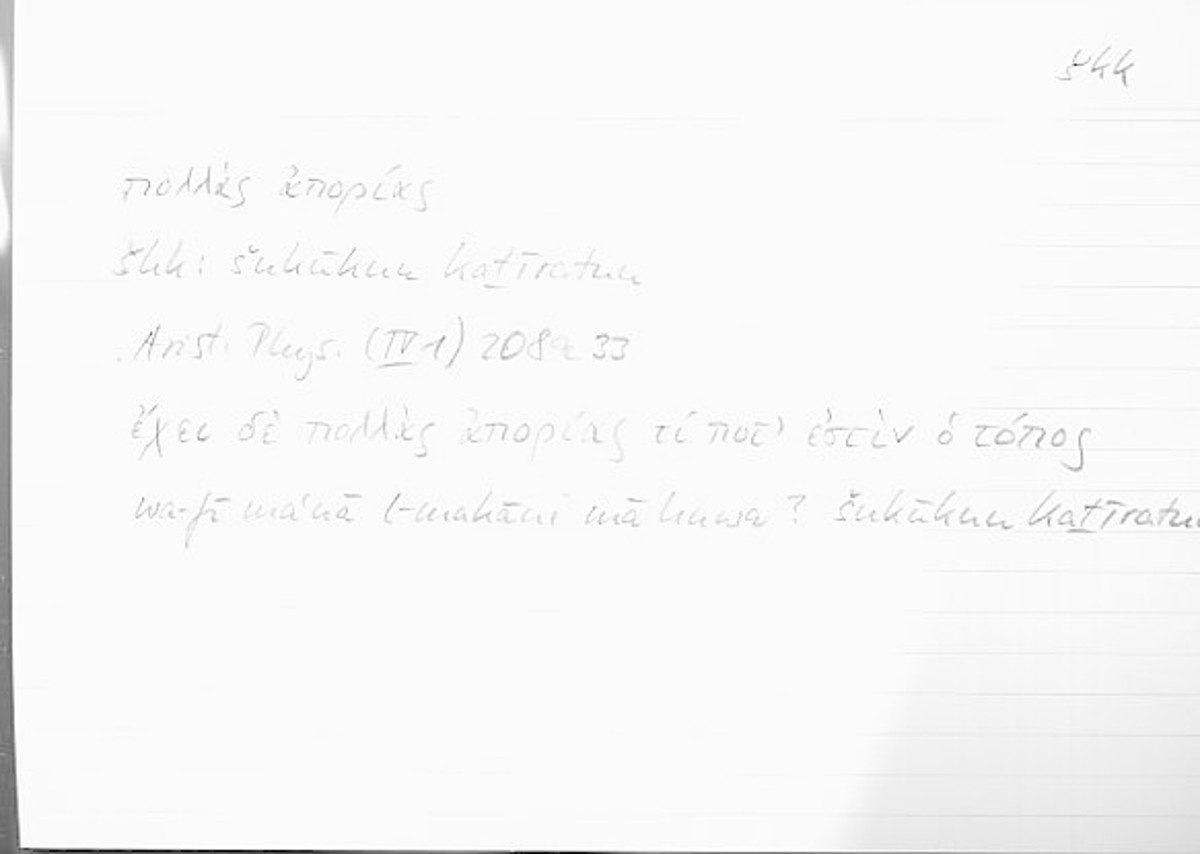 škk
πολλὰς ἀπορίας
škk: šukūkun kaṯīratun
Arist. Phys. (IV 1) 208a 33
ἔχει δὲ πολλὰς ἀπορίας τί ποτ' ἐστὶν ὁ τόπος
wa-fī maʿnā l-makāni mā huwa? šukūkun kaṯīratun